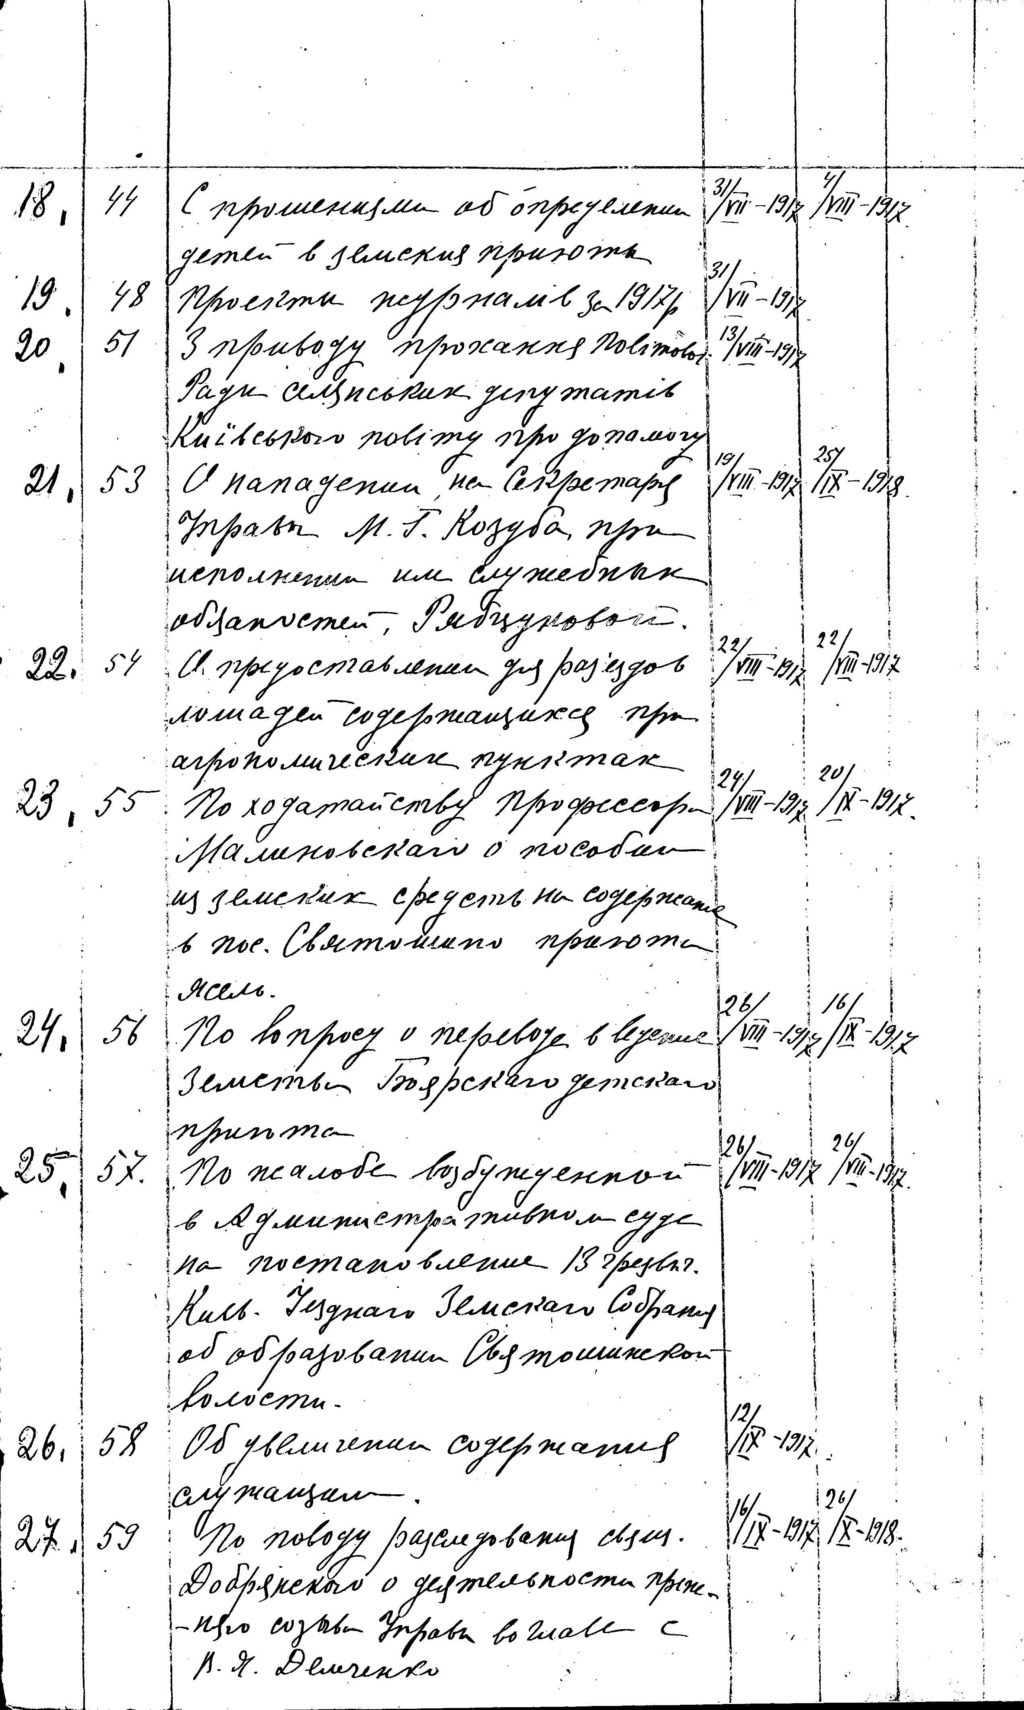 18. 44 С прошениями об определении 31/VII-1917 4/VIII-1917
детей в земския приюты
19. 48 Проекти журналів за 1917р 31/VII-1917
20. 51 З приводу прохання 13/VIII-1917
Ради селянських депутатів
Київського повіту про допомогу
21. 53 О нападении на Секретаря 19/VIII-1917 25/IX-1918.
Управы М. Г. Козуба, при
исполнении им служебных
обяаностей, Рябчуковой.
22. 54 О предоставлении для раз'ездов 22/VIII-1917 22/VIII-1917
лошадей содержащихся при
агрономических пунктах
23. 55 По ходатайству профессора 24/VIII-1917 20/IX-1917.
Малиновскаго о пособии
из земских средств на содержание
в пос. Святошино приюта
ясель.
24. 56 По вопросу о переводе в ведение 26/VIII-1917 16/IX-1917
Земства Боярскаго детскаго
приюта
25. 57. По жалобе возбужденной 26/VIII-1917 26/VIII-1917.
в Административном суде
на постановление 13 чрезвыч.
Киев. Уезднаго Земскаго Собрания
об образовании Святошинской
волости.
26. 58 Об увеличении содержания 12/IX-1917.
служащим.
27. 59 По поводу разследования свящ. 16/IX-1917 26/X-1918.
Добрянскаго о деятельности преж-
-няго созыва Управы во главе с
В. Я. Демченко